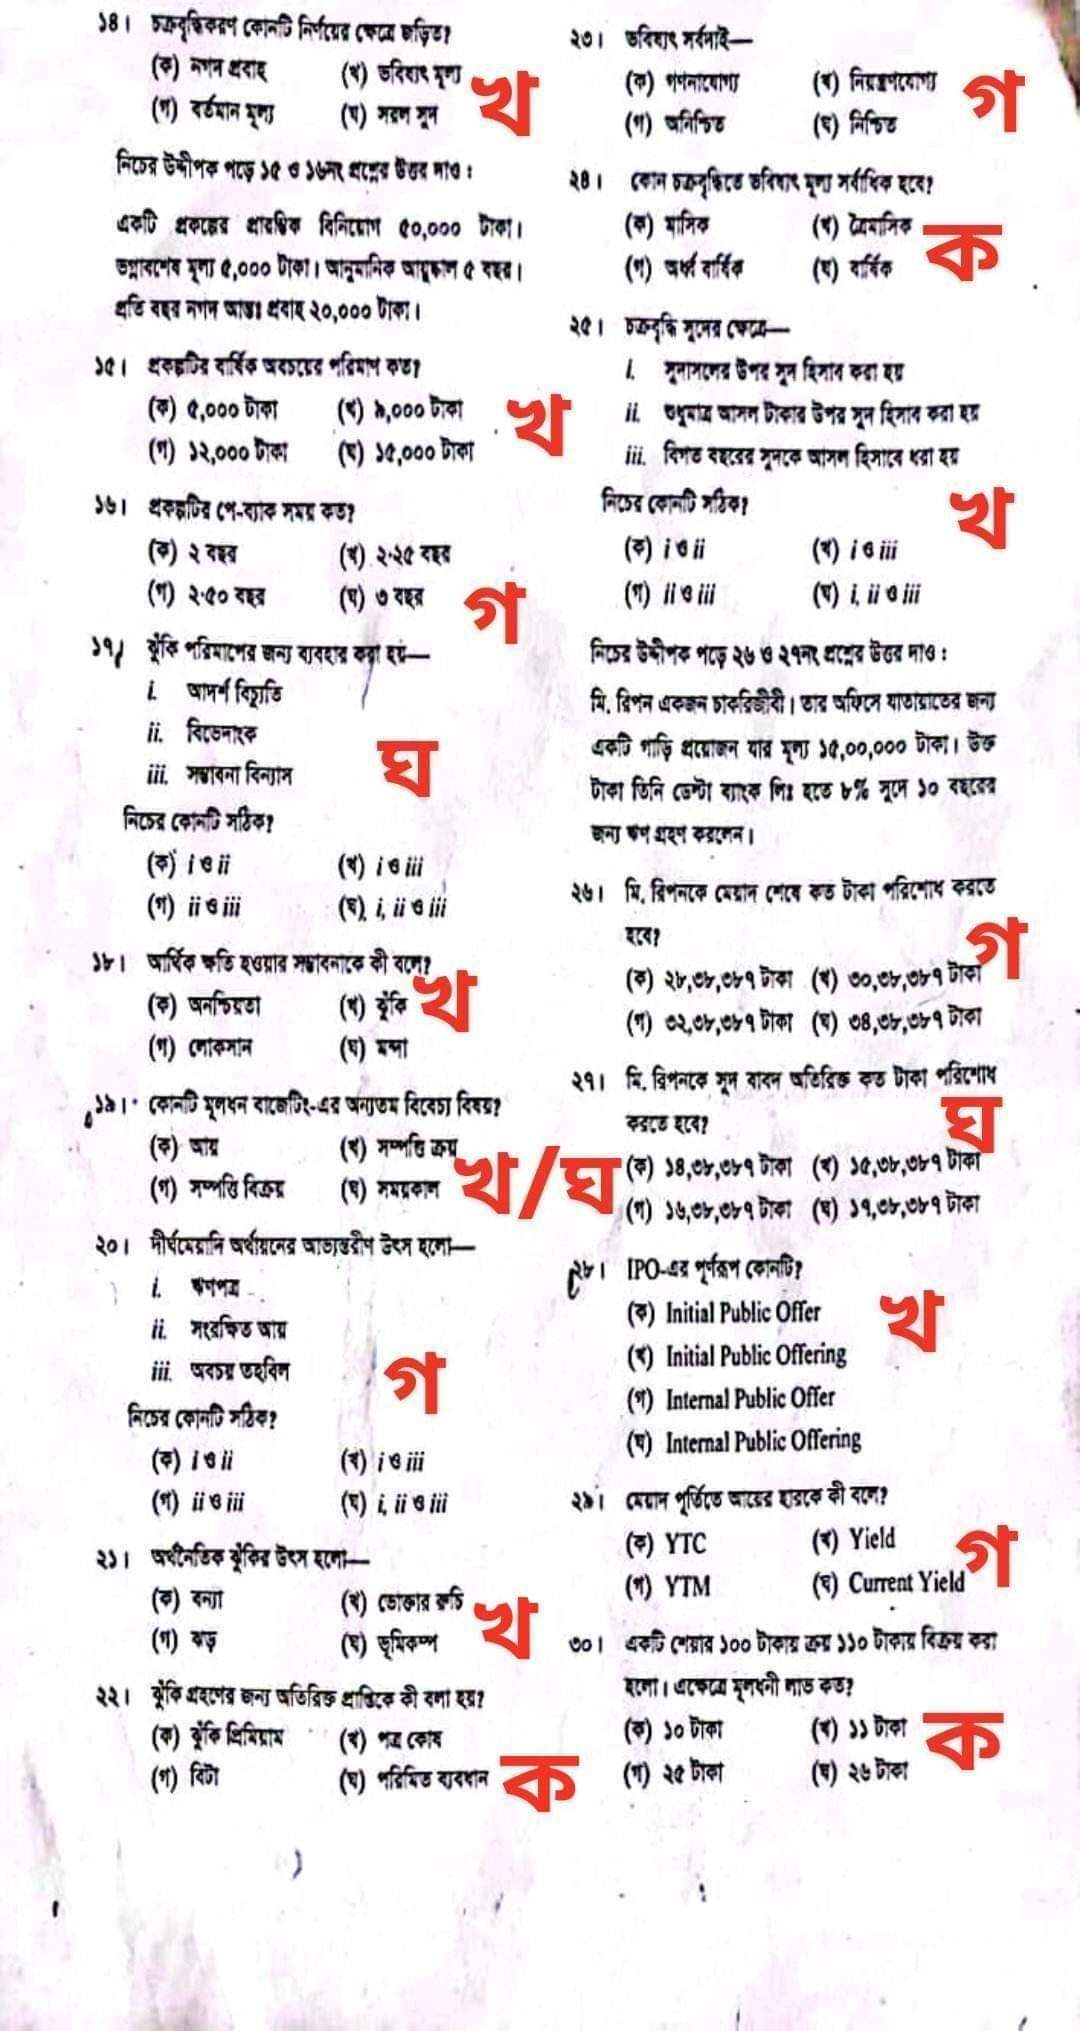 ১৪। চক্রবৃদ্ধিকরণ কোনটি নির্ণয়ের ক্ষেত্রে জড়িত?
(ক) নগদ প্রবাহ (খ) ভবিষ্যৎ মূল্য
(গ) বর্তমান মূল্য (ঘ) সরল সুদ
খ
নিচের উদ্দীপক পড়ে ১৫ ও ১৬নং প্রশ্নের উত্তর দাও :
একটি প্রকল্পের প্রারম্ভিক বিনিয়োগ ৫০,০০০ টাকা।
ভগ্নাবশেষ মূল্য ৫,০০০ টাকা। আনুমানিক আয়ুষ্কাল ৫ বছর।
প্রতি বছর নগদ আন্তঃ প্রবাহ ২০,০০০ টাকা।
১৫। প্রকল্পটির বার্ষিক অবচয়ের পরিমাণ কত?
(ক) ৫,০০০ টাকা (খ) ৯,০০০ টাকা
(গ) ১২,০০০ টাকা (ঘ) ১৫,০০০ টাকা
খ
১৬। প্রকল্পটির পে-ব্যাক সময় কত?
(ক) ২ বছর (খ) ২·২৫ বছর
(গ) ২·৫০ বছর (ঘ) ৩ বছর
গ
১৭। ঝুঁকি পরিমাপের জন্য ব্যবহার করা হয়—
i. আদর্শ বিচ্যুতি
ii. বিভেদাংক
iii. সম্ভাবনা বিন্যাস
ঘ
নিচের কোনটি সঠিক?
(ক) i ও ii (খ) i ও iii
(গ) ii ও iii (ঘ) i, ii ও iii
১৮। আর্থিক ক্ষতি হওয়ার সম্ভাবনাকে কী বলে?
(ক) অনশ্চিয়তা (খ) ঝুঁকি
(গ) লোকসান (ঘ) মন্দা
খ
১৯। কোনটি মূলধন বাজেটিং-এর অন্যতম বিবেচ্য বিষয়?
(ক) আয় (খ) সম্পত্তি ক্রয়
(গ) সম্পত্তি বিক্রয় (ঘ) সময়কাল
খ/ঘ
২০। দীর্ঘমেয়াদি অর্থায়নের আভ্যন্তরীণ উৎস হলো—
i. ঋণপত্র
ii. সংরক্ষিত আয়
iii. অবচয় তহবিল
গ
নিচের কোনটি সঠিক?
(ক) i ও ii (খ) i ও iii
(গ) ii ও iii (ঘ) i, ii ও iii
২১। অর্থনৈতিক ঝুঁকির উৎস হলো—
(ক) বন্যা (খ) ভোক্তার রুচি
(গ) ঝড় (ঘ) ভূমিকম্প
খ
২২। ঝুঁকি গ্রহণের জন্য অতিরিক্ত প্রাপ্তিকে কী বলা হয়?
(ক) ঝুঁকি প্রিমিয়াম (খ) পত্র কোষ
(গ) বিটা (ঘ) পরিমিত ব্যবধান
ক
২৩। ভবিষ্যৎ সর্বদাই—
(ক) গণনাযোগ্য (খ) নিয়ন্ত্রণযোগ্য
(গ) অনিশ্চিত (ঘ) নিশ্চিত
গ
২৪। কোন চক্রবৃদ্ধিতে ভবিষ্যৎ মূল্য সর্বাধিক হবে?
(ক) মাসিক (খ) ত্রৈমাসিক
(গ) অর্ধ বার্ষিক (ঘ) বার্ষিক
ক
২৫। চক্রবৃদ্ধি সুদের ক্ষেত্রে—
i. সুদাসলের উপর সুদ হিসাব করা হয়
ii. শুধুমাত্র আসল টাকার উপর সুদ হিসাব করা হয়
iii. বিগত বছরের সুদকে আসল হিসাবে ধরা হয়
নিচের কোনটি সঠিক?
(ক) i ও ii (খ) i ও iii
(গ) ii ও iii (ঘ) i, ii ও iii
খ
নিচের উদ্দীপক পড়ে ২৬ ও ২৭নং প্রশ্নের উত্তর দাও :
মি. রিপন একজন চাকরিজীবী। তার অফিসে যাতায়াতের জন্য
একটি গাড়ি প্রয়োজন যার মূল্য ১৫,০০,০০০ টাকা। উক্ত
টাকা তিনি ডেল্টা ব্যাংক লিঃ হতে ৮% সুদে ১০ বছরের
জন্য ঋণ গ্রহণ করলেন।
২৬। মি. রিপনকে মেয়াদ শেষে কত টাকা পরিশোধ করতে
হবে?
(ক) ২৮,৩৮,৩৮৭ টাকা (খ) ৩০,৩৮,৩৮৭ টাকা
(গ) ৩২,৩৮,৩৮৭ টাকা (ঘ) ৩৪,৩৮,৩৮৭ টাকা
গ
২৭। মি. রিপনকে সুদ বাবদ অতিরিক্ত কত টাকা পরিশোধ
করতে হবে?
(ক) ১৪,৩৮,৩৮৭ টাকা (খ) ১৫,৩৮,৩৮৭ টাকা
(গ) ১৬,৩৮,৩৮৭ টাকা (ঘ) ১৭,৩৮,৩৮৭ টাকা
ঘ
২৮। IPO-এর পূর্ণরূপ কোনটি?
(ক) Initial Public Offer
(খ) Initial Public Offering
(গ) Internal Public Offer
(ঘ) Internal Public Offering
খ
২৯। মেয়াদ পূর্তিতে আয়ের হারকে কী বলে?
(ক) YTC (খ) Yield
(গ) YTM (ঘ) Current Yield
গ
৩০। একটি শেয়ার ১০০ টাকায় ক্রয় ১১০ টাকায় বিক্রয় করা
হলো। এক্ষেত্রে মূলধনী লাভ কত?
(ক) ১০ টাকা (খ) ১১ টাকা
(গ) ২৫ টাকা (ঘ) ২৬ টাকা
ক